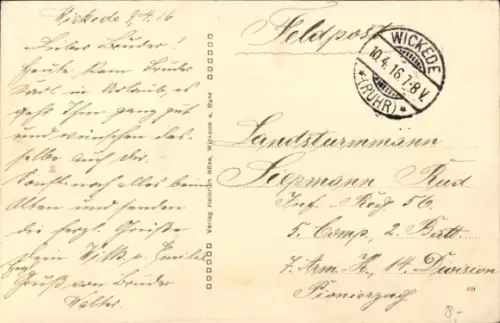 Wickede 8/4.16
Lieber Bruder!
Heute kam Bruder
Karl in Urlaub, es
geht Ihm ganz gut
und wünschen das-
selbe auch Dir.
Sonst noch alles beim
Alten und senden
die herzl. Grüße
Dein Willi u. Familie
Gruß von Bruder
Walter.
Verlag Heinrich Wickede a. Ruhr
Feldpost
WICKEDE
10.4.16.7-8V.
*(RUHR)*
Landsturmmann
Rud
Inf. Reg 56
5. Comp, 2. Batt.
7. Arm. K, 14. Division
Pionierzug
8.-